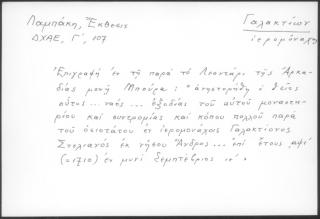 Λαμπάκη, Ἔκθεσις
ΔΧΑΕ, Γ΄, 107
Γαλακτίων
ἱερομόναχος
Ἐπιγραφὴ ἐκ τῆ παρὰ τὸ Λεοντάρι τῆς Ἀρκα-
δίας μονῆ Μπούρα: ἀνηστορήθη ὁ θεῖος
οὗτος... ναός... ἐξοδίας τοῦ αὐτοῦ μοναστη-
ρίου καὶ συντρομίας καὶ κόπου πολλοῦ παρὰ
τοῦ ὁσιοτάτου ἐν ἱερομονάχοις Γαλακτίονος
Στελιανός ἐκ νήσου Ἄνδρος... ἐπὶ ἔτους αψί
(=1710) ἐν μυνὶ Σεμπτέβριος